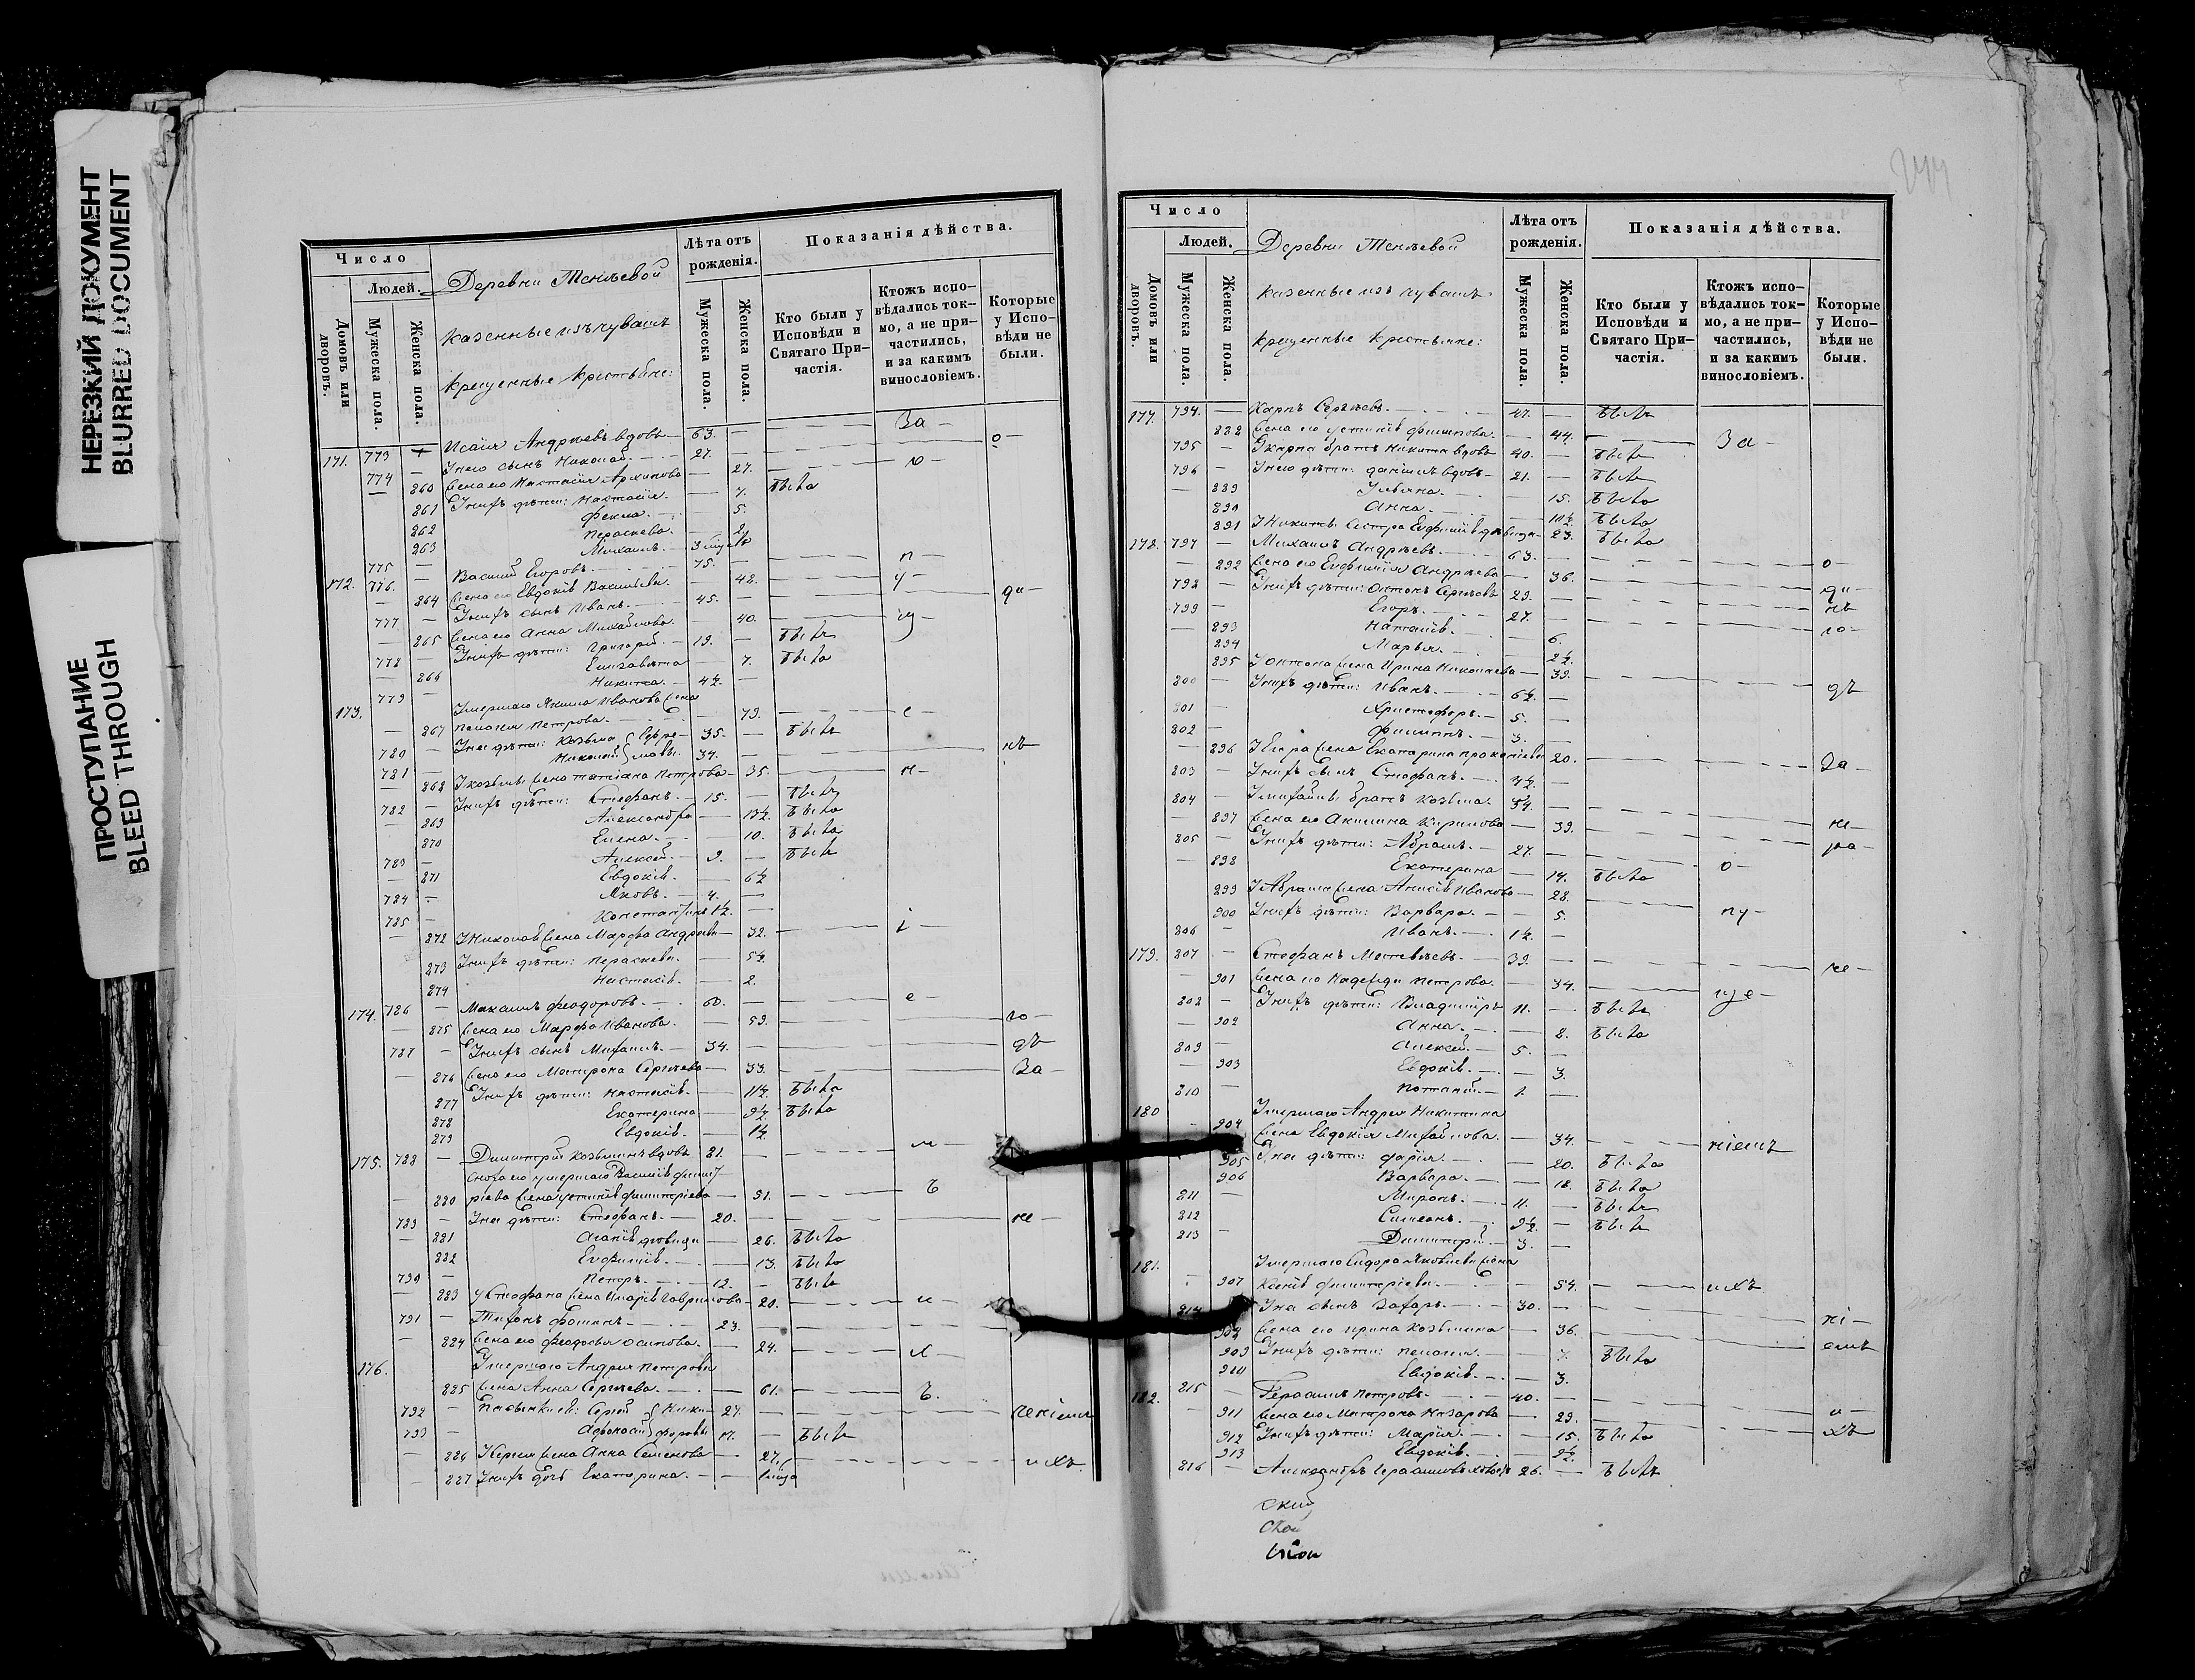 НЕРЕЗКИЙ ДОКУМЕНТ
BLURRED DOCUMENT
ПРОСТУПАНИЕ
BLEED THROUGH
Число
Людей.
Домовъ или дворовъ.
Мужеска пола.
Женска пола.
Деревни
казенные изъ чувашъ
крещенные крестьяне:
Лѣта отъ рожденія.
Мужеска пола.
Женска пола.
Показанія дѣйства.
Кто были у Исповѣди и Святаго При-частія.
Ктожъ испо-вѣдались ток-мо, а не при-частились, и за какимъ винословіемъ.
Которые у Испо-вѣди не были.
171. 773 Исаія Андреевъ вдовъ 63. — За —
774 У него сынъ Николай. 27. — о —
860 Жена его Настасія Архипова 27. — ю —
861 У нихъ дѣти: Настасія. 7. Была
862 Фекла. 5.
863 Пераскева. 2.
775 Михаилъ. 3
172. 776. Василій Егоровъ. 75. — п —
864 Жена его Евдокія Васильева. 48. — у —
777 У нихъ сынъ Иванъ. 45. — ди —
865 Жена его Анна Михайлова. 40. — щ —
778 У нихъ дѣти: Григорій. 19. Былъ
866 Елизавета 7. Была
779 Никита. 4½.
173. Умершаго Якима Иванова жена
867 Пелагея Петрова. 79. — е —
780 У нея дѣти: Козьма 35. Былъ
781 Николай 34. — нъ
868 У козьмы жена татіана Петрова 35. — н —
782 У нихъ дѣти: Стефанъ. 15. Былъ
869 Александра 13½. Была
870 Елена. 10. Была
783 Алексей. 9. Былъ
871 Евдокія. 6½
784 Яковъ. 4.
785 Константинъ 1½.
872 У Николая жена Марфа Андреева 32. — і —
873 У нихъ дѣти: Пераскева. 5½.
874 Настасія. 2.
174. 786 Михаилъ Феодоровъ. 60. — е —
875 Жена его Марфа Иванова. 59. — го —
787 У нихъ сынъ Михаилъ. 34. — дъ
876 Жена его Матрона Сергеева 33. — За —
877 У нихъ дѣти: Настасія. 11½ Была
878 Екатерина 9½. Была
879 Евдокія. 1½.
175. 788 Димитрій Козьминъ вдовъ 81. — м —
Сноха его умершаго Василія
880 жена устинія Филипова 51. — Ъ
789 У нея дѣти: Стефанъ. 20. — не —
881 Агапія девица 26. Была
882 Евфимія. 13. Была
790 Петръ. 12. Былъ
883 У Стефана жена Марія Гаврилова 20. — и —
791 Тихонъ Фоминъ. 23.
884 Жена его Феодосья Осипова. 24. — х —
176. Умершаго Андрея Петрова
885 Жена Анна Сергеева. 61. — Ъ.
792 Пасынки её: Сергей 27. — ченіемъ
793 Афонасій 17. Былъ
886 У Сергея жена Анна Семенова 27. — ихъ.
887 У нихъ дочь Екатерина. 1
Число
Людей.
Домовъ или дворовъ.
Мужеска пола.
Женска пола.
Деревни
казенные изъ чувашъ
крещенные крестьяне:
Лѣта отъ рожденія.
Мужеска пола.
Женска пола.
Показанія дѣйства.
Кто были у Исповѣди и Святаго При-частія.
Ктожъ испо-вѣдались ток-мо, а не при-частились, и за какимъ винословіемъ.
Которые у Испо-вѣди не были.
177. 794. Карпъ Сергеевъ. 47. Былъ
888 Жена его устинія Филипова. 44. — За —
795 У карпа братъ Никита вдовъ 40. Былъ
796 У него дѣти: даніилъ вдовъ 21. Былъ
889 Ульяна. 15. Была
890 Анна. 10½. Была
891 У Никиты сестра Евфимія девица 23. Была
178. 797 Михаилъ Андреевъ. 63. — о —
892 Жена его Евфимія Андреева 36. — ди —
798 У нихъ дѣти: Антонъ Сергеевъ 29. — нъ
799 Егоръ. 27. — го —
893 Наталія. 6.
894 Марья. 2½.
895 У Антона жена Ирина Николаева 39. — дъ
800 У нихъ дѣти: Иванъ. 6½.
801 Христофоръ. 5.
802 Филиппъ. 3.
896 У Егора жена Екатерина Прокопіева 20. — За —
803 У нихъ сынъ Стефанъ. 4½.
804 У Михаила братъ Козьма. 54. — не —
897 Жена его Акилина Кирилова 39. — ра —
805 У нихъ дѣти: Абрамъ. 27. — о —
898 Екатерина 14. Была
899 У Абрама жена Анисія Иванова 28. — пу —
900 У нихъ дѣти: Варвара. 5.
806 Иванъ. 1½.
179. 807 Стефанъ Матвѣевъ. 39. — не —
901 Жена его Надежда Петрова. 34. — ще —
808 У нихъ дѣти: Владиміръ 11. Былъ
902 Анна. 8. Была
809 Алексей. 5.
903 Евдокія. 3.
810 Потапій. 1.
180 Умершаго Андрея Никитина
904 Жена Евдокія Михайлова. 34. — ніемъ
905 У нея дѣти: дарія. 20. Была
906 Варвара. 18. Была
811 Миронъ. 11. Былъ
812 Симеонъ. 9½. Былъ
813 Димитрій. 3.
181. Умершаго Сидора Яковлева жена
907 Ксенія Димитріева. 54. — ихъ
814 У нея сынъ Захаръ. 30. — ні —
908 Жена его Ирина Козьмина 36. — емъ
909 У нихъ дѣти: Пелагея. 7. Была
910 Евдокія. 3.
182. 815 Герасимъ Петровъ. 40. — и —
911 Жена его Матрона Назарова 29. — хъ
912 У нихъ дѣти: Марія. 15. Была
913 Евдокія. 2½.
816 Александръ Герасимовъ 26. Былъ